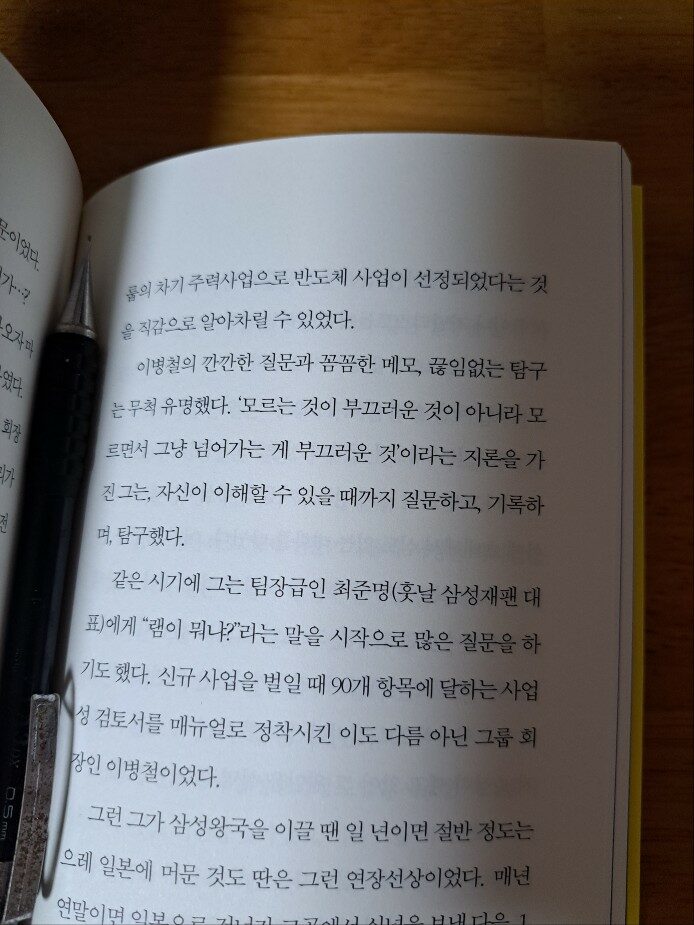 문이었다.
가…?
오자 마
였다.
회장
리가
전
룹의 차기 주력사업으로 반도체 사업이 선정되었다는 것
을 직감으로 알아차릴 수 있었다.
이병철의 깐깐한 질문과 꼼꼼한 메모, 끊임없는 탐구
는 무척 유명했다. ‘모르는 것이 부끄러운 것이 아니라 모
르면서 그냥 넘어가는 게 부끄러운 것’이라는 지론을 가
진 그는, 자신이 이해할 수 있을 때까지 질문하고, 기록하
며, 탐구했다.
같은 시기에 그는 팀장급인 최준명(훗날 삼성재팬 대
표)에게 “램이 뭐냐?”라는 말을 시작으로 많은 질문을 하
기도 했다. 신규 사업을 벌일 때 90개 항목에 달하는 사업
성 검토서를 매뉴얼로 정착시킨 이도 다름 아닌 그룹 회
장인 이병철이었다.
그런 그가 삼성왕국을 이끌 땐 일 년이면 절반 정도는
으레 일본에 머문 것도 딴은 그런 연장선상이었다. 매년
연말이면 일본으로 건너가 그곳에서 신년을 보낸 다음 1
0.5mm